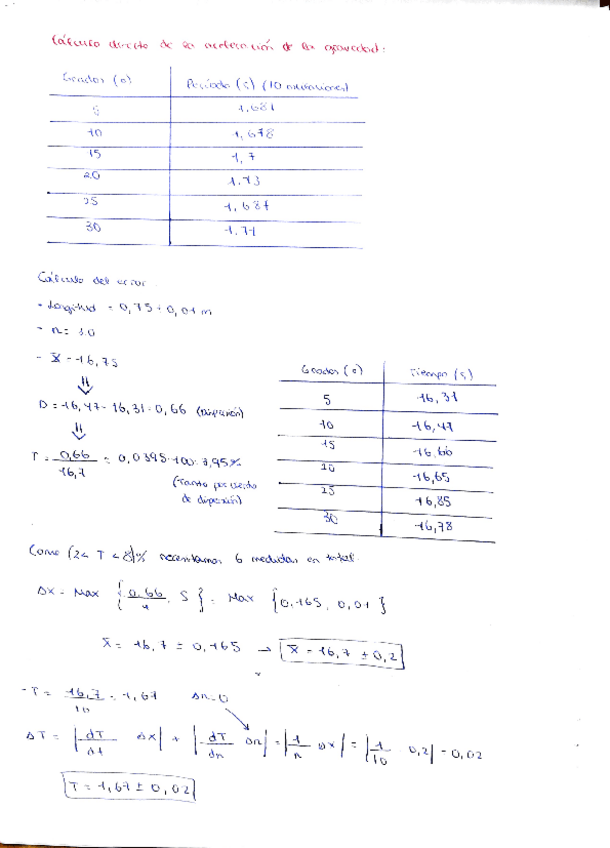 Cálculo directo de la aceleración de la gravedad:
Grados (º) Período (s) (10 oscilaciones)
5 1,681
10 1,678
15 1,7
20 1,73
25 1,687
30 1,71
Cálculo del error
- Longitud = 0,75 ± 0,01 m
- n = 10
- x̄ = 16,75
⇓
D = 16,47 - 16,31 = 0,66 (Dispersión)
⇓
T = 0,66 / 16,7 = 0,0395 · 100 = 3,95%
(Tanto por ciento
de dispersión)
Grados (º) Tiempo (s)
5 16,31
10 16,47
15 16,66
20 16,65
25 16,85
30 16,78
Como (2 < T < 8)% necesitamos 6 medidas en total.
Δx = Max { 0,66 / 4 , S } = Max { 0,165, 0,01 }
x̄ = 16,7 ± 0,165 → x̄ = 16,7 ± 0,2
- T = 16,7 / 10 = 1,67 Δn = 0
ΔT = | dT/dt Δx | + | dT/dn Δn | = | 1/n Δx | = | 1/10 0,2 | = 0,02
T = 1,67 ± 0,02